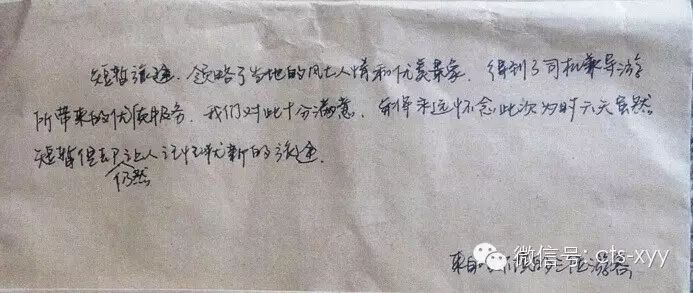 短暂旅途,领略了当地的风土人情和优美景象,得到了司机兼导游
所带来的优质服务,我们对此十分满意,并将永远怀念此次为时六天虽然
短暂但却让人记忆犹新的旅途.
仍然
来自 三位游客
微信号: cts-xyy